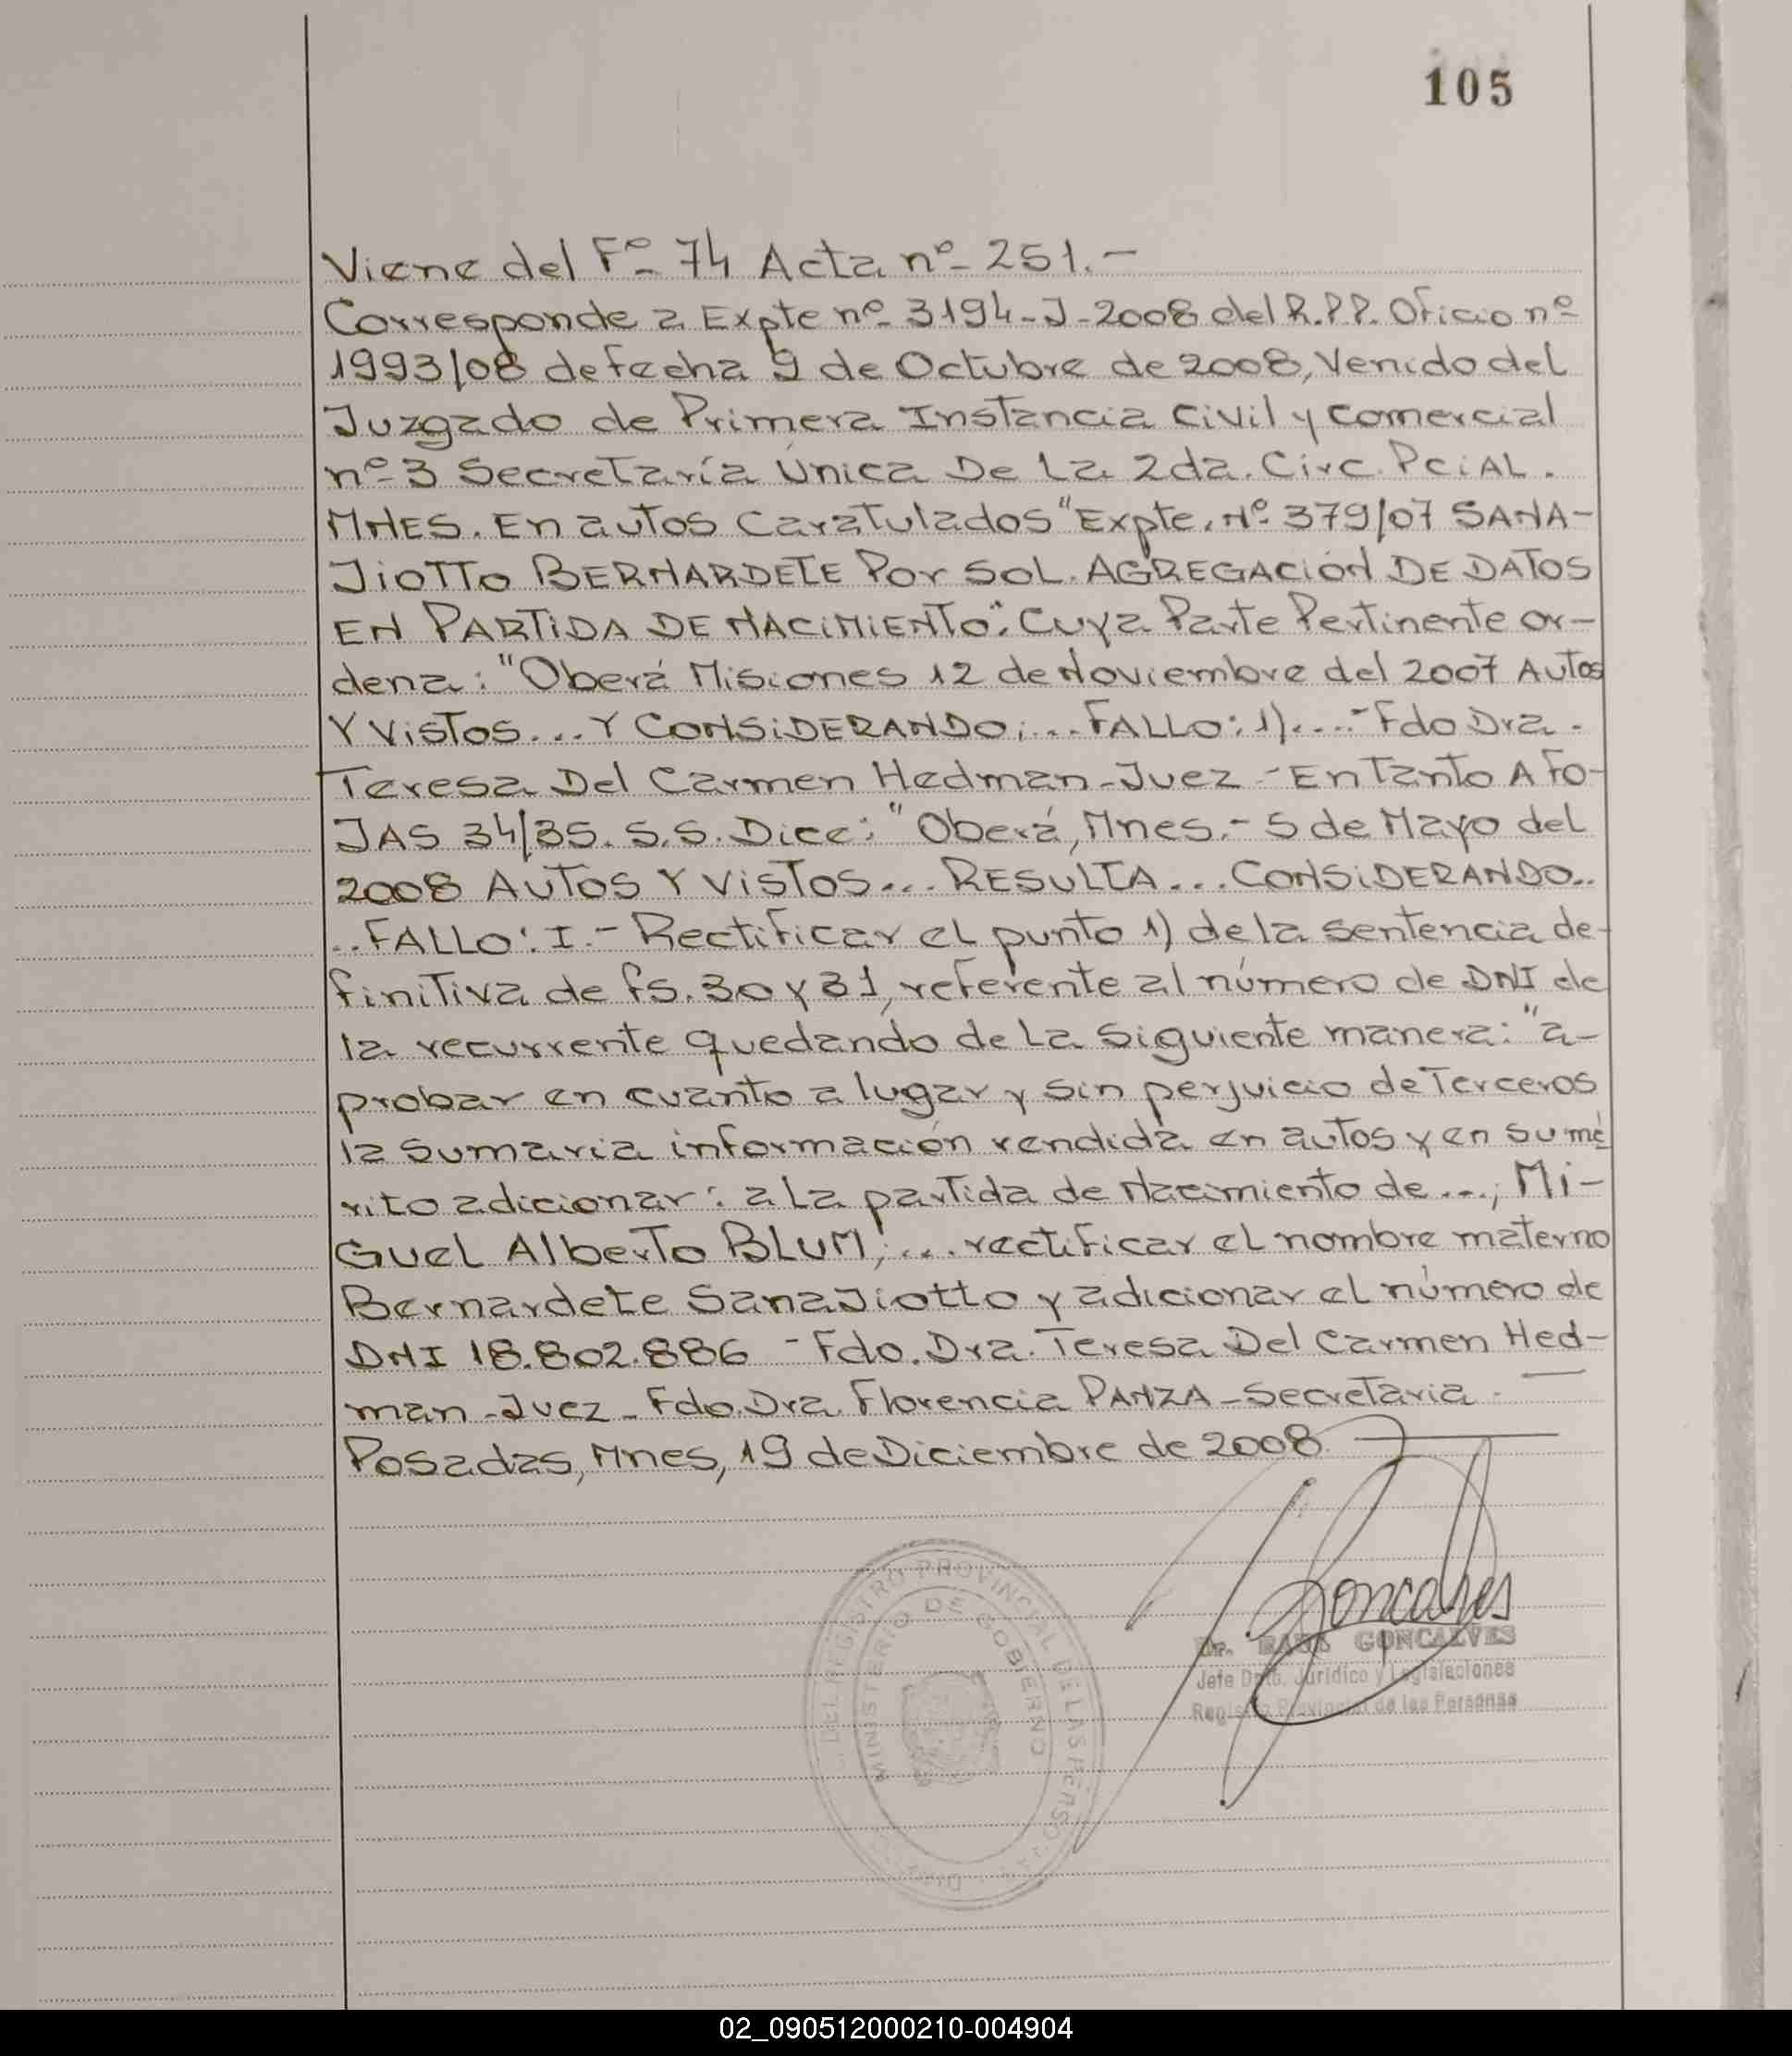 105
Viene del Fº 74 Acta nº 251.-
Corresponde a Expte nº 3194-J-2008 del R.P.P. Oficio nº
1993/08 de fecha 9 de Octubre de 2008, Venido del
Juzgado de Primera Instancia Civil y Comercial
nº 3 Secretaría Única De La 2da. Circ. PciAL.
MNES. En autos Caratulados "Expte. Nº 379/07 SANA-
JiOTTO BERNARDETE Por SOL. AGREGACIÓN DE DATOS
EN PARTIDA DE NACIMIENTO". Cuya Parte Pertinente or-
dena: "Oberá Misiones 12 de Noviembre del 2007 Autos
Y VISTOS... Y CONSIDERANDO;... FALLO: 1)....- Fdo Dra.
Teresa Del Carmen Hedman-Juez - En Tanto A FO-
JAS 34/35. S.S. Dice: "Oberá, Mnes.- 5 de Mayo del
2008 AUTOS Y VISTOS... RESULTA... CONSIDERANDO..
..FALLO: I.- Rectificar el punto 1) de la sentencia de-
finitiva de fs. 30 y 31, referente al número de DNI de
la recurrente quedando de La siguiente manera: "a-
probar en cuanto a lugar y sin perjuicio de Terceros
la sumaria información rendida en autos y en su mé
rito adicionar: a La partida de Nacimiento de...; Mi-
Guel Alberto BLUM;... rectificar el nombre materno
Bernardete SanaJiotto y adicionar el número de
DNI 18.802.886 - Fdo. Dra. Teresa Del Carmen Hed-
man-Juez - Fdo. Dra. Florencia PANZA - Secretaria. —
Posadas, Mnes, 19 de Diciembre de 2008.
Goncalves
GONCALVES
Jefe Dpto. Jurídico y Legislaciones
Registro Provincial de las Personas
DEL REGISTRO PROVINCIAL DE LAS PERSONAS
MINISTERIO DE GOBIERNO
02_090512000210-004904